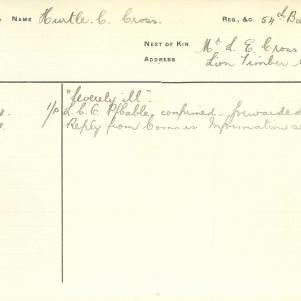 NAME Hurtle. C. Cross. REG., &C. 54th Ba
NEXT OF KIN Mr L. E. Cross
ADDRESS Lion Timber
"Severely ill".
confirmed - forwarded
Reply from Comm is Information s